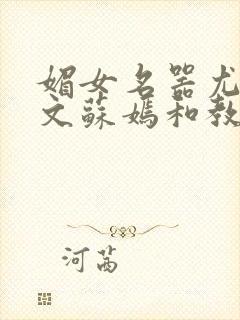 媚女名器尤
文蘇媽和教
河茜